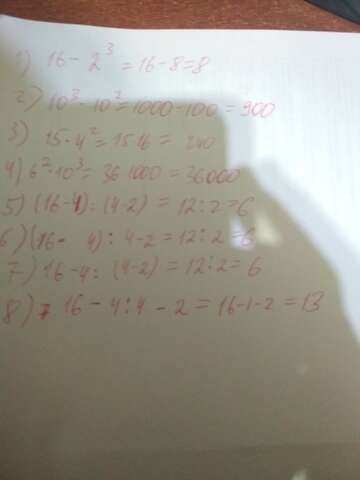 1) 16 - 2³ = 16 - 8 = 8
2) 10³ - 10² = 1000 - 100 = 900
3) 15 · 4² = 15 16 = 240
4) 6² · 10³ = 36 1000 = 36000
5) (16-4) : (4-2) = 12 : 2 = 6
6) (16 - 4) : 4 - 2 = 12 : 2 = 6
7) 16 - 4 : (4-2) = 12 : 2 = 6
8) 16 - 4 : 4 - 2 = 16 - 1 - 2 = 13